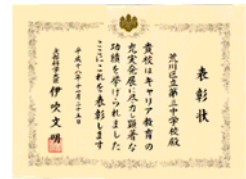 表彰状
荒川区立第三中学校殿
貴校はキャリア教育の
充実発展に尽力し顕著な
功績を挙げられました
ここにこれを表彰します
平成十八年十一月二十五日
文部科学大臣 伊吹文明